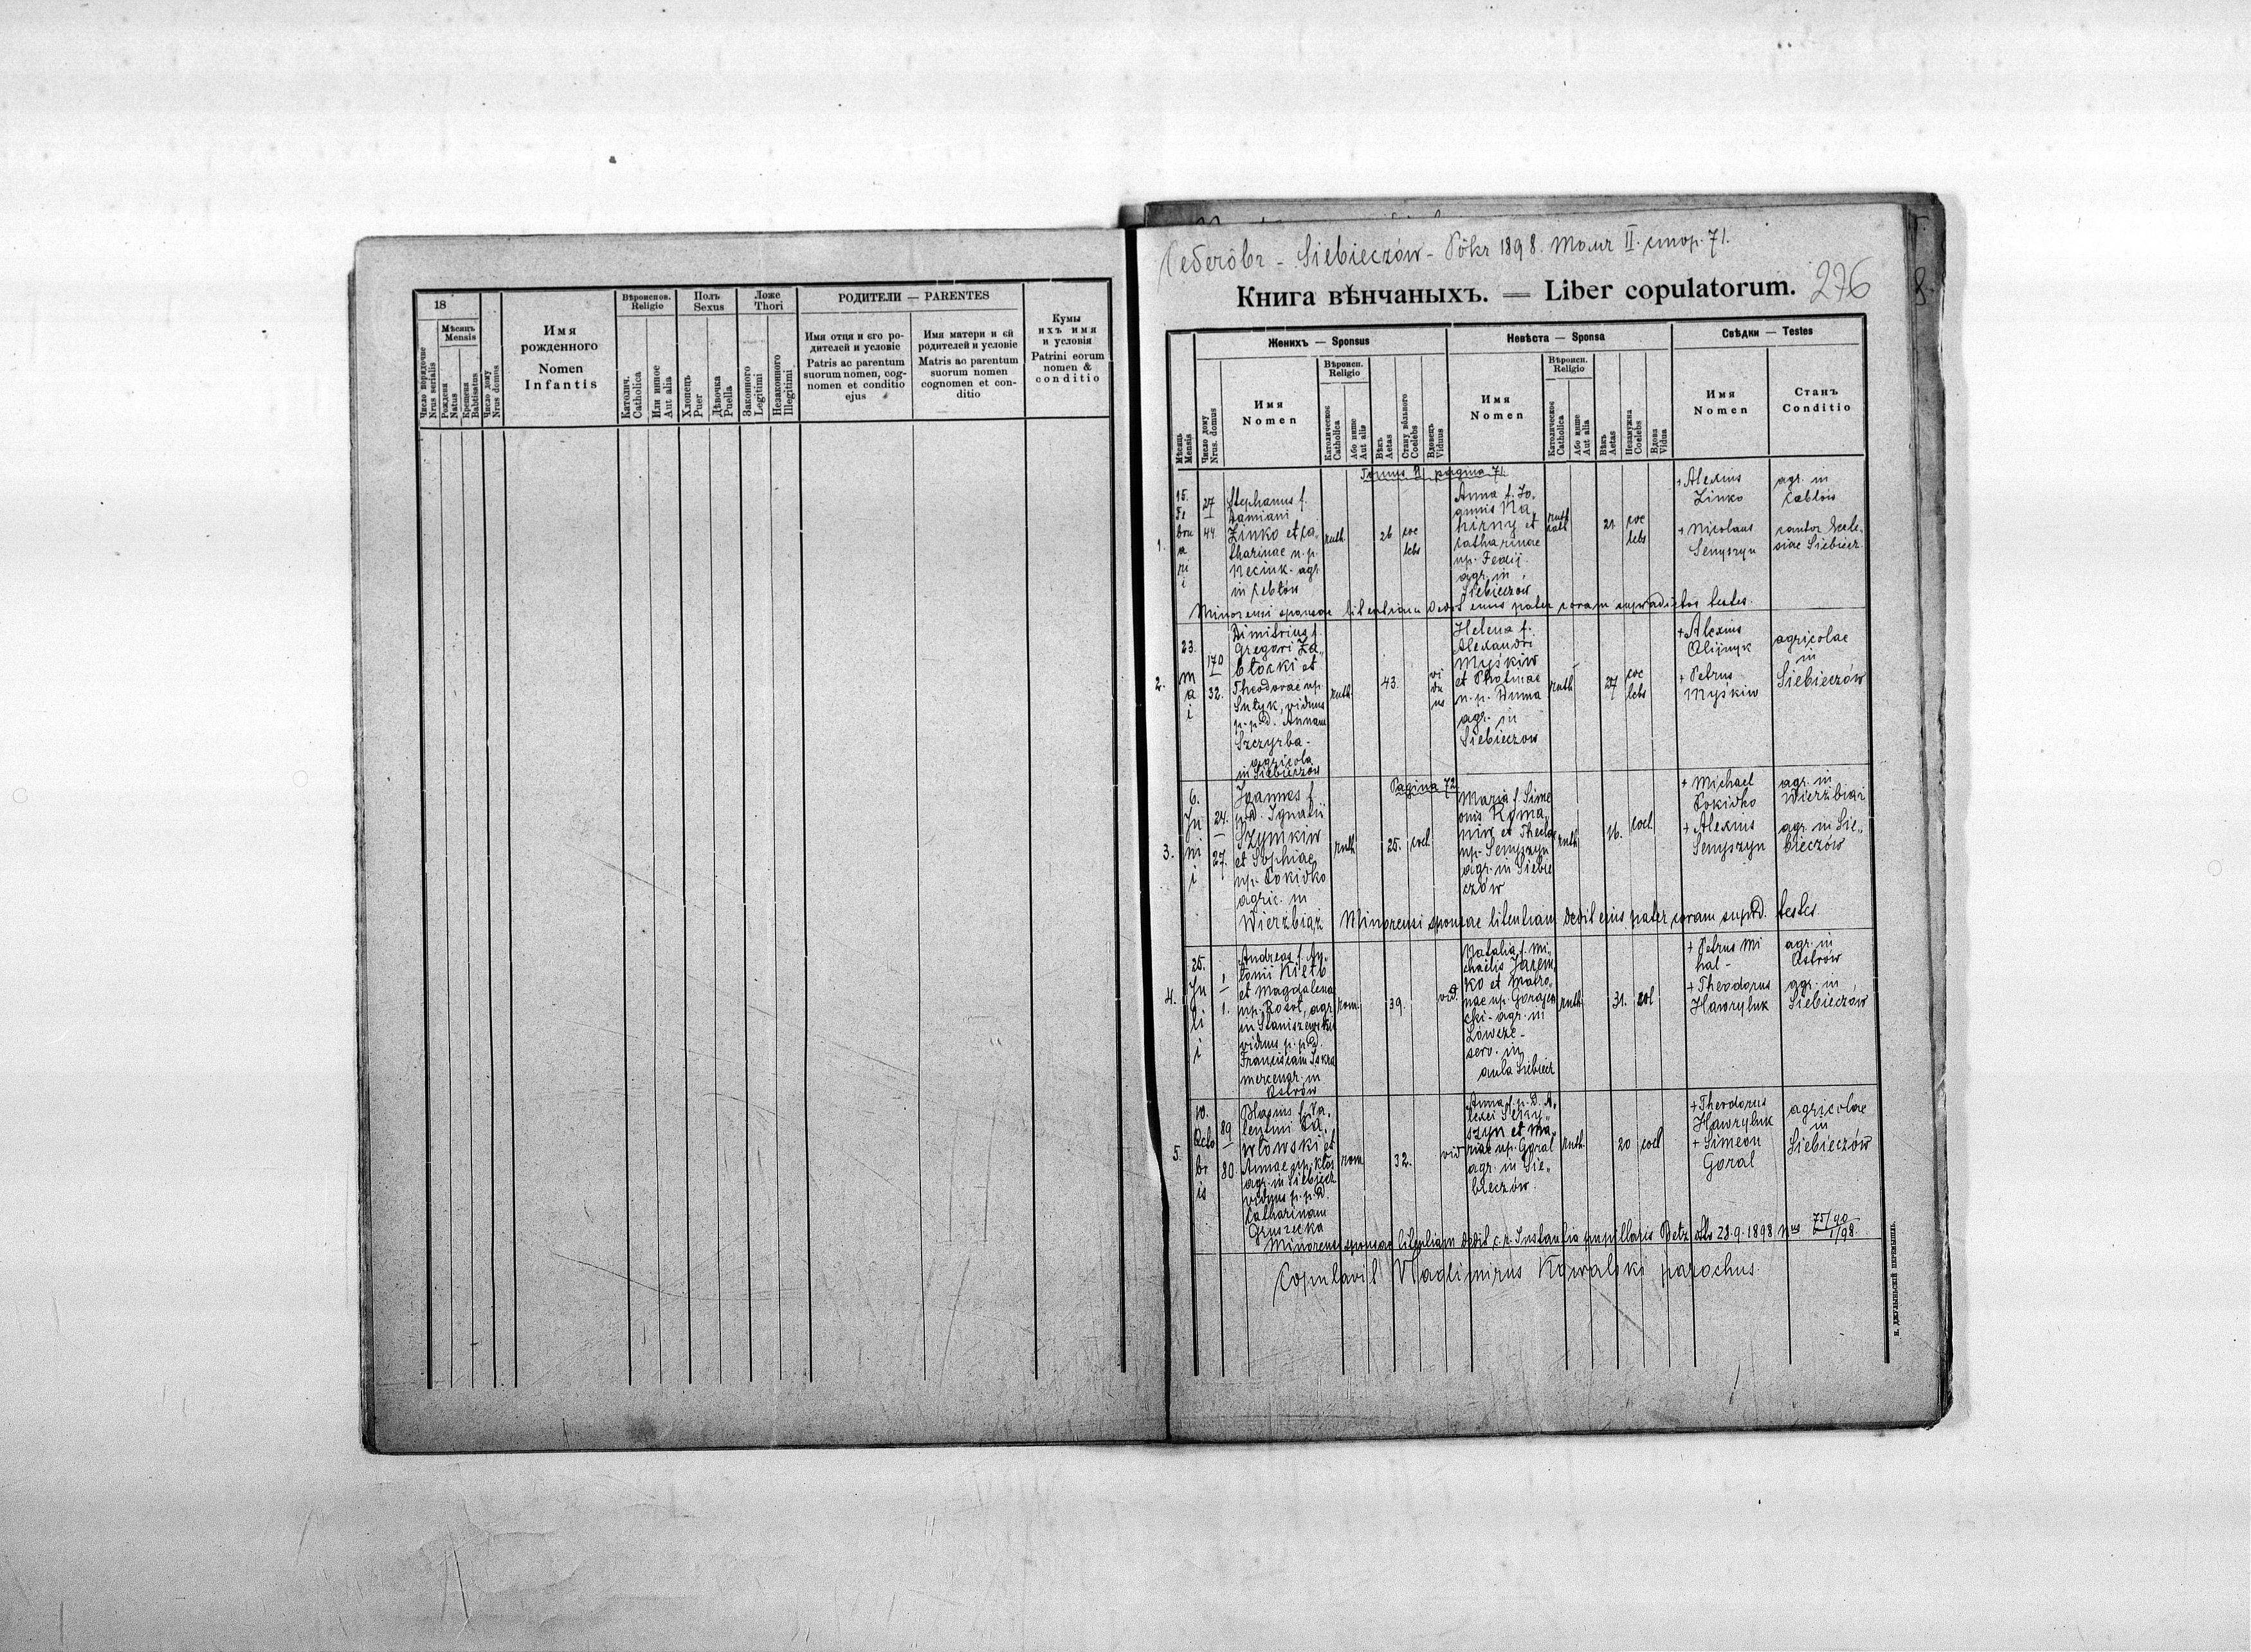 18
Мѣсяцъ
Mensis
Число порядочне
Nrus serialis
Рожденя
Natus
Крещеня
Babtisatus
Число дому
Nrus domus
Имя
рожденного
Nomen
Infantis
Вѣроиспов.
Religio
Католич.
Catholica
Или инное
Aut alia
Полъ
Sexus
Хлопець
Puer
Дѣвочка
Puella
Ложе
Thori
Законного
Legitimi
Незаконного
Illegitimi
РОДИТЕЛИ — PARENTES
Имя отця и єго ро-
дителей и условіе
Patris ac parentum
suorum nomen, cog-
nomen et conditio
ejus
Имя матери и єй
родителей и условіе
Matris ac parentum
suorum nomen
cognomen et con-
ditio
Кумы
ихъ имя
и условія
Patrini eorum
nomen &
conditio
Siebieczów - Рокъ 1898. Томъ II. стор. 71.
Книга вѣнчаныхъ. — Liber copulatorum.
276
Мѣсяць
Mensis
Женихъ — Sponsus
Число дому
Nrus. domus
Имя
Nomen
Вѣроисп.
Religio
Католическое
Catholica
Або инше
Aut alia
Вѣкъ
Aetas
Стану вѣльного
Coelebs
Вдовець
Viduus
Невѣста — Sponsa
Имя
Nomen
Вѣроисп.
Religio
Католическое
Catholica
Або инше
Aut alia
Вѣкъ
Aetas
Незамужна
Coelebs
Вдова
Vidua
Свѣдки — Testes
Имя
Nomen
Станъ
Conditio
Tomus II pagina 71.
1.
15.
Fe
bru
a
ri
i
27
44
Stephanus f.
Damiani
Zinko et Ca,,
tharinae n.p.
Neciuk - agr
in
ruth
26
coe
lebs
Anna f. Jo,
annis Na
hirny et
Catharinae
np. Fedij
agr. in
Siebieczów
ruth
cath
21
coe
lebs
+ Alexius
Zinko
+ Nicolaus
Senyszyn
agr. in
cantor Eccle,
siae Siebiecz.
Minorensi sponsae licentiam dedit eius pater coram supradictos testes.
2.
23.
m
a
i
170
32.
Dimitrius f.
Gregori Za,,
błocki et
Theodorae np.
viduus
p. p.d. Annam
Szczyrba -
agricola
in Siebieczów
ruth
43.
vi
du
us
Helena f.
Alexandri
Myśkiw
et
n.p. Duma
agr. in
Siebieczów
ruth
27
coe
lebs
+ Alexius
Olijnyk
+ Petrus
Myśkiw
agricolae
in
Siebieczów
Pagina 72
3.
6.
Ju
ni
i
24.
27.
Joannes f.
p.d. Ignatii
Szymkiw
et Sophiae
np. Pokidko
agric. in
Wierzbiąż
ruth
25.
coel
Maria f. Sime
onis Roma,
niw et Theclae
np. Senyszyn
agr. in Siebie
czów
ruth
16.
coel
+ Michael
Pokidko
+ Alexius
Senyszyn
agr. in
Wierzbiąż
agr. in Sie,,
bieczów
Minorensi sponsae licentiam dedit eius pater coram suprad. testes.
4.
25.
Ju
li
i
1
1.
Andreas f. An,
tonii Kielb
et Magdalena
np. Kosot, agr
in Staniszewskie
viduus p. p.d.
Franciscam Iskra
mercenar. in
Ostrów
rom.
39.
vid.
Natalia f. Mi,
chaelis Jarem,
ko et Macro,
nae np. Gorajec
cki - agr. in
Łowcze -
serv. in
aula Siebiecz
ruth
31.
col
+ Petrus Mi
hal -
+ Theodorus
Hawryluk
agr. in
Ostrów
agr. in
Siebieczów
5.
10.
Octo
br
is
89
80
Blasius f. Va,
lentini Pa,
włowski et
Annae np. Kłos
agr. in Siebiecz
viduus p. p.d.
Catharinam
Gruszecka
rom
32.
vid
Anna f. p.d. A,
lexei Seny,,
szyn et Ma,
riae np. Goral
agr. in Sie,,
bieczów.
ruth.
20
coel
+ Theodorus
Hawryluk
+ Simeon
Goral
agricolae
in
Siebieczów
Minorensi sponsae licentiam dedit c. r. Instantia pupillaris Bełz dto 29.9.1898 Nus 75/90 1/98.
Copulavit Vladimirus Kowalski parochus.
Н. ДЖУЛЫНЬСКІЙ ПЕРЕМЫШЛЬ.